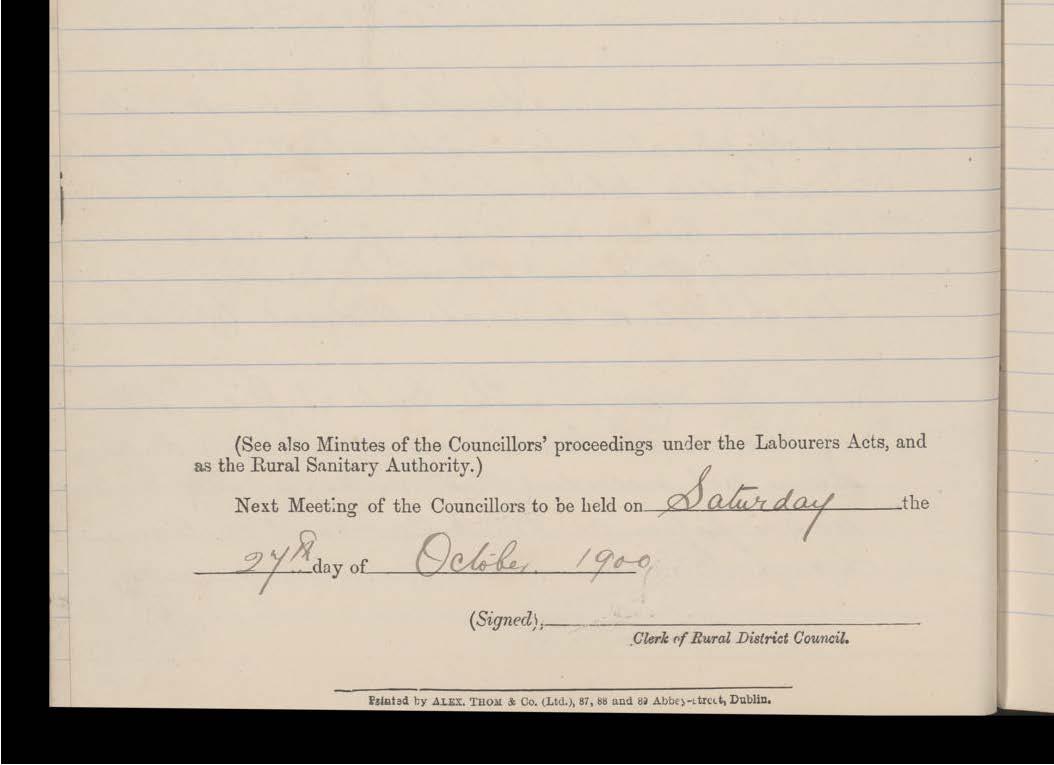 (See also Minutes of the Councillors' proceedings under the Labourers Acts, and
as the Rural Sanitary Authority.)
Next Meeting of the Councillors to be held on Saturday the
27th day of October. 1900
(Signed),
Clerk of Rural District Council.
Printed by ALEX. THOM & Co. (Ltd.), 87, 88 and 89 Abbey-street, Dublin.